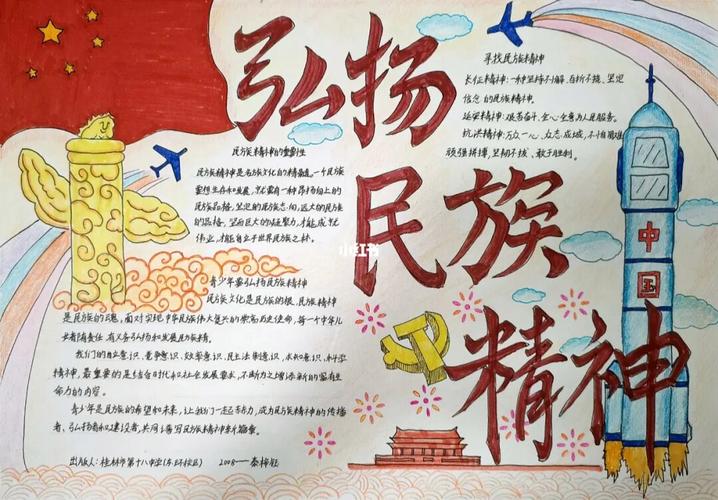 弘扬
民族
精神
寻找民族精神
长征精神:一种坚持不懈、自析不挠、坚定
信念的民族精神。
延安精神:艰苦奋斗、全心全意为人民服务。
抗洪精神:万众一心、众志成城,不怕艰难
顽强拼搏,坚韧不拔、敢于胜利。
民族精神的重要性
民族精神是各族文化的精髓,一个民族
要想生存和发展,就要有一种昂扬向上的
民族品格,坚定的民族志向,远大的民族
的品格,坚而巨大的凝聚力,才能成就
伟业,才能自立于世界民族之林。
青少年要弘扬民族精神
民族文化是民族的根,民族精神
是民族的魂,面对实现中华民族伟大复兴的崇高历史使命,每一个中华儿
女者有责任、有义务弘扬和发展民族精。
我们的自立意识、竞争意识、效率意识、民主法律意识、求知意识、科学
精神,最重要的是结合时代和社会发展要求,不断为之增添新的富有生
命力的内容。
青少年是民族的希望和未来,让我们一起努力,成为民族精神的传播
者、弘扬者和建设者,共同谱写民族精神新篇章。
出版人:桂林市第十八中学(东环校区) 2008——秦梓钰
中国
小红书